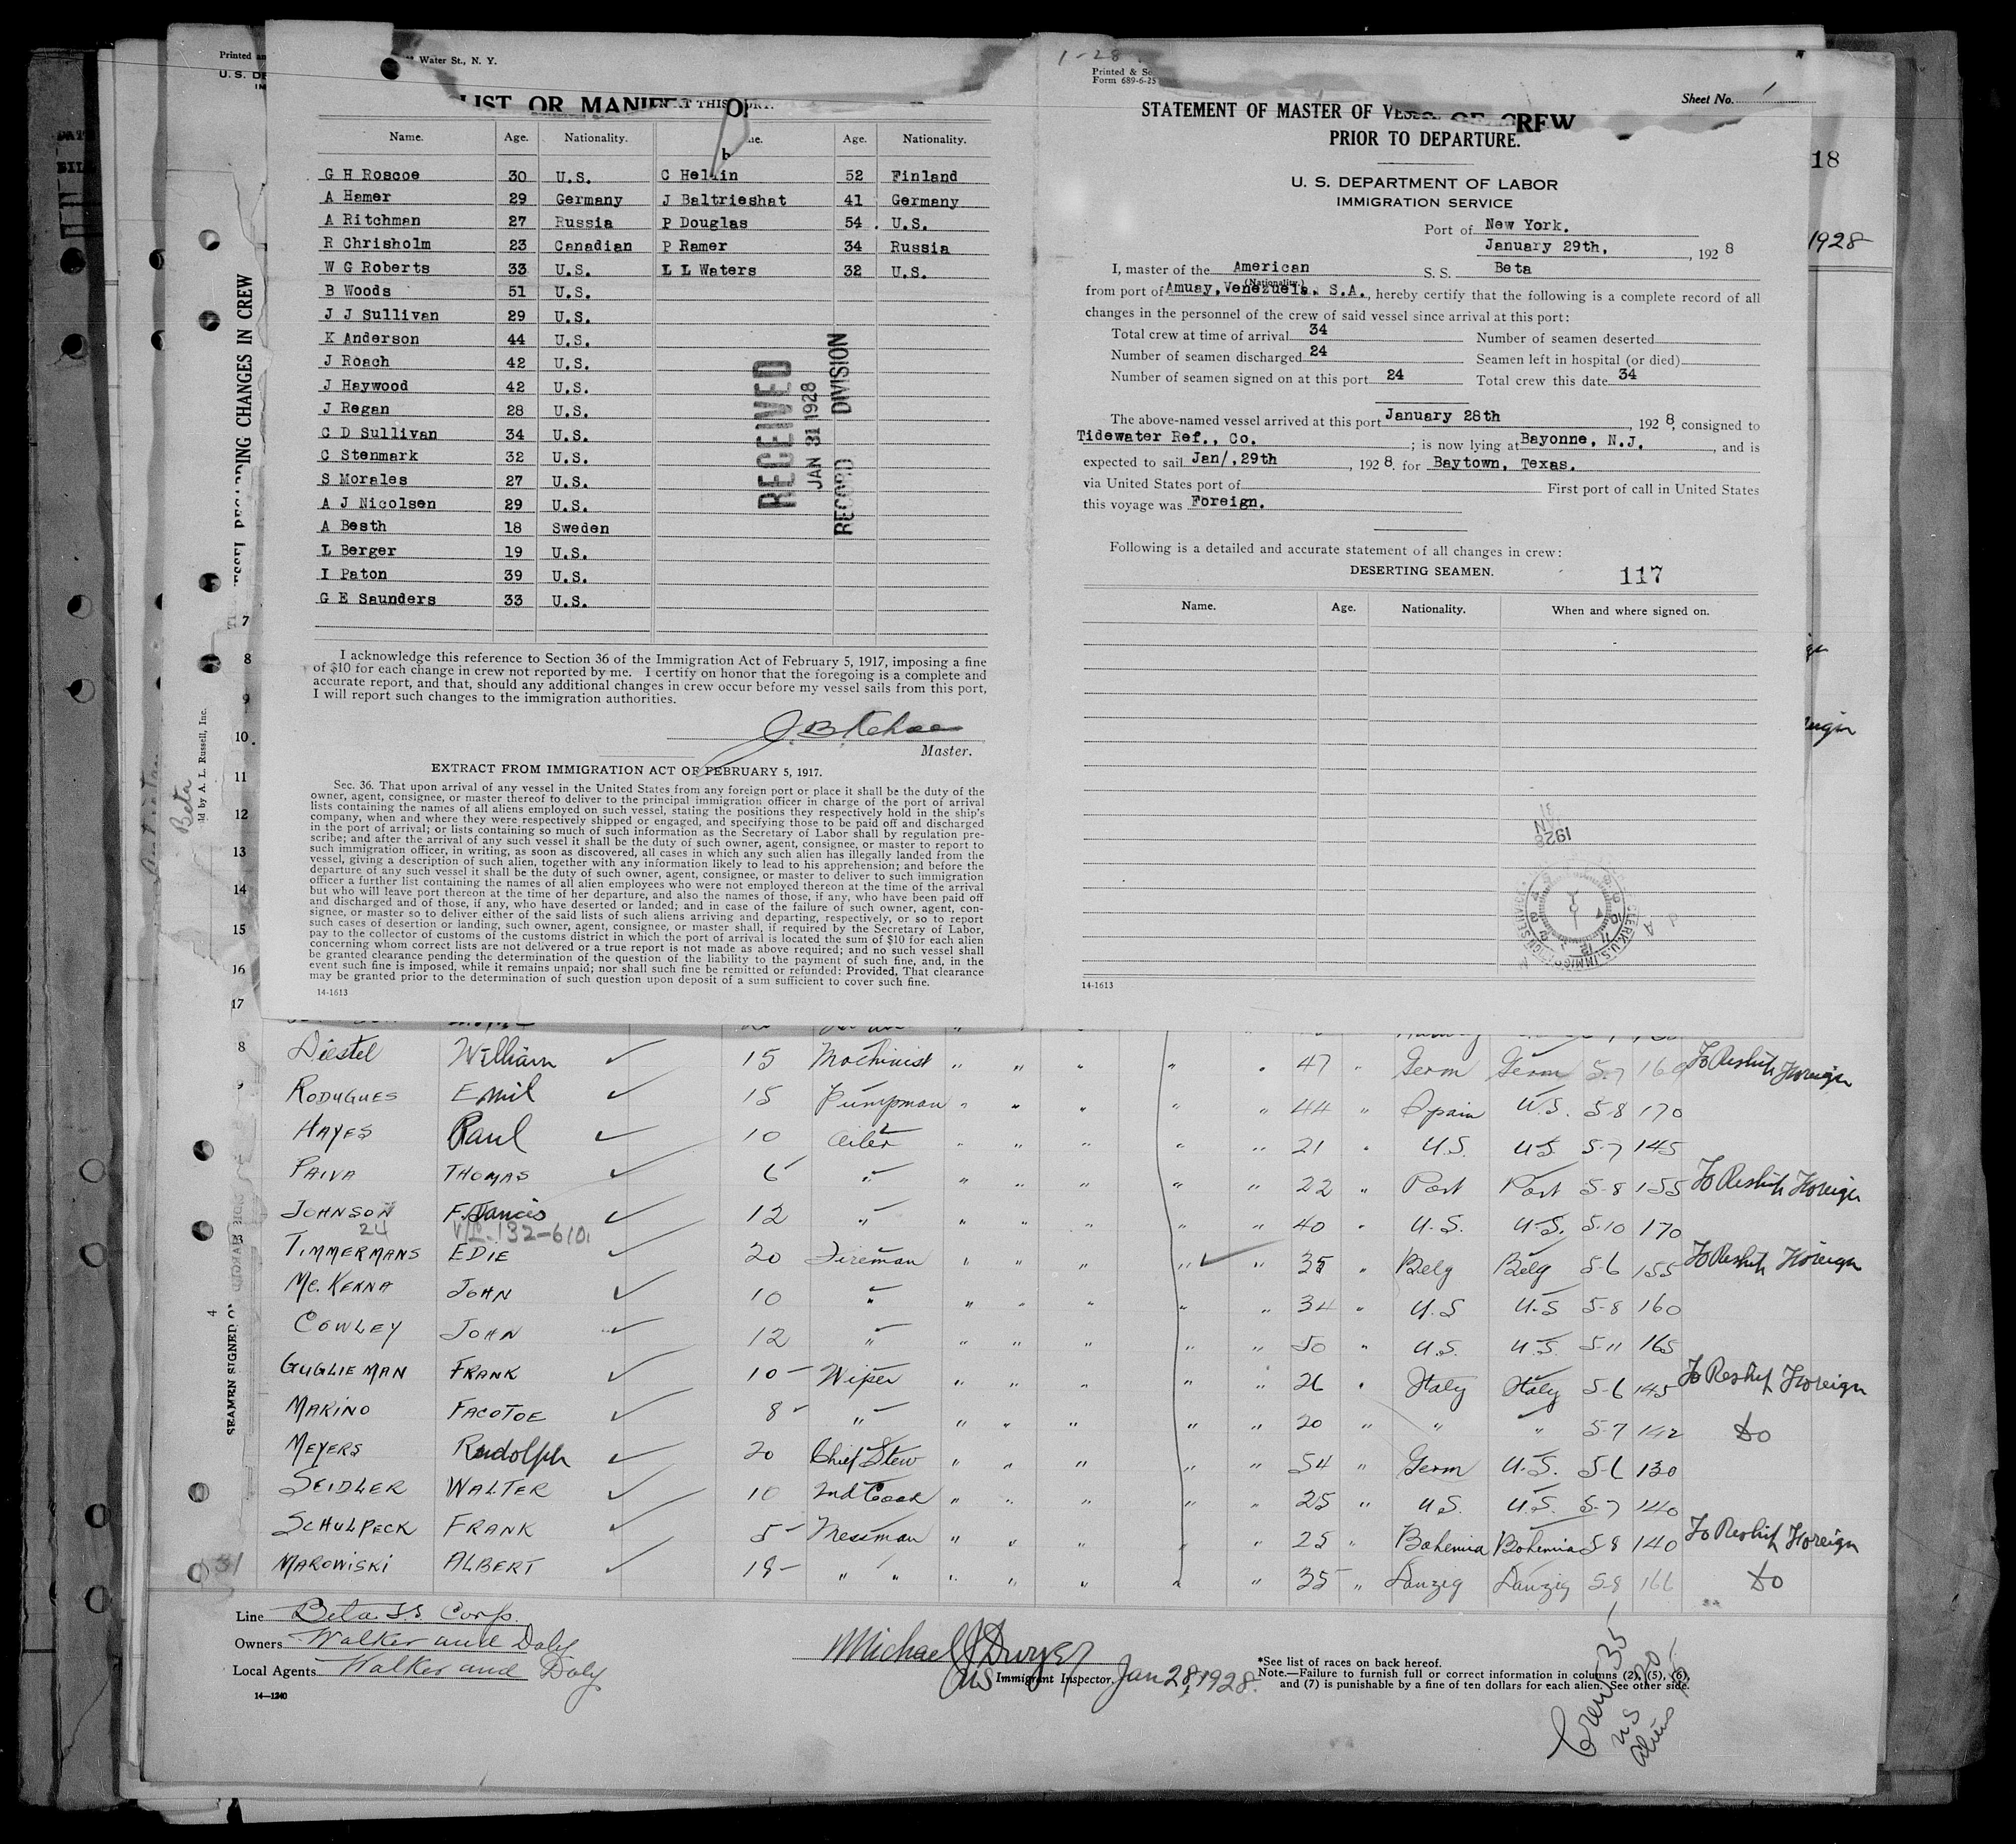 Water St., N. Y.
LIST OR
Name. Age. Nationality. Age. Nationality.
G H Roscoe 30 U.S. C Hellin 52 Finland
A Hamer 29 Germany J Baltrieshat 41 Germany
A Ritchman 27 Russia P Douglas 54 U.S.
R Chrisholm 23 Canadian P Ramer 34 Russia
W G Roberts 33 U.S. L L Waters 32 U.S.
B Woods 51 U.S.
J J Sullivan 29 U.S.
K Anderson 44 U.S.
J Roach 42 U.S.
J Haywood 42 U.S.
J Regan 28 U.S.
C D Sullivan 34 U.S.
C Stenmark 32 U.S.
S Morales 27 U.S.
A J Nicolsen 29 U.S.
A Besth 18 Sweden
L Berger 19 U.S.
I Paton 39 U.S.
G E Saunders 33 U.S.
RECEIVED
JAN 31 1928
RECORD DIVISION
I acknowledge this reference to Section 36 of the Immigration Act of February 5, 1917, imposing a fine
of $10 for each change in crew not reported by me. I certify on honor that the foregoing is a complete and
accurate report, and that, should any additional changes in crew occur before my vessel sails from this port,
I will report such changes to the immigration authorities.
Master.
EXTRACT FROM IMMIGRATION ACT OF FEBRUARY 5, 1917.
Sec. 36. That upon arrival of any vessel in the United States from any foreign port or place it shall be the duty of the
owner, agent, consignee, or master thereof to deliver to the principal immigration officer in charge of the port of arrival
lists containing the names of all aliens employed on such vessel, stating the positions they respectively hold in the ship's
company, when and where they were respectively shipped or engaged, and specifying those to be paid off and discharged
in the port of arrival; or lists containing so much of such information as the Secretary of Labor shall by regulation pre-
scribe; and after the arrival of any such vessel it shall be the duty of such owner, agent, consignee, or master to report to
such immigration officer, in writing, as soon as discovered, all cases in which any such alien has illegally landed from the
vessel, giving a description of such alien, together with any information likely to lead to his apprehension; and before the
departure of any such vessel it shall be the duty of such owner, agent, consignee, or master to deliver to such immigration
officer a further list containing the names of all alien employees who were not employed thereon at the time of the arrival
but who will leave port thereon at the time of her departure, and also the names of those, if any, who have been paid off
and discharged and of those, if any, who have deserted or landed; and in case of the failure of such owner, agent, con-
signee, or master so to deliver either of the said lists of such aliens arriving and departing, respectively, or so to report
such cases of desertion or landing, such owner, agent, consignee, or master shall, if required by the Secretary of Labor,
pay to the collector of customs of the customs district in which the port of arrival is located the sum of $10 for each alien
concerning whom correct lists are not delivered or a true report is not made as above required; and no such vessel shall
be granted clearance pending the determination of the question of the liability to the payment of such fine, and, in the
event such fine is imposed, while it remains unpaid; nor shall such fine be remitted or refunded: Provided, That clearance
may be granted prior to the determination of such question upon deposit of a sum sufficient to cover such fine.
14-1613
1-28
Form 689-6-25
Sheet No. 1
STATEMENT OF MASTER OF
CREW
PRIOR TO DEPARTURE.
U. S. DEPARTMENT OF LABOR
IMMIGRATION SERVICE
Port of New York.
January 29th, , 1928
I, master of the American S. S. Beta
(Nationality.)
from port of Amuay, Venezuela, S.A., hereby certify that the following is a complete record of all
changes in the personnel of the crew of said vessel since arrival at this port:
Total crew at time of arrival 34 Number of seamen deserted
Number of seamen discharged 24 Seamen left in hospital (or died)
Number of seamen signed on at this port 24 Total crew this date 34
The above-named vessel arrived at this port January 28th , 1928, consigned to
Tidewater Ref., Co. ; is now lying at Bayonne, N.J. , and is
expected to sail Jan/,29th , 1928. for Baytown, Texas.
via United States port of First port of call in United States
this voyage was Foreign.
Following is a detailed and accurate statement of all changes in crew:
DESERTING SEAMEN. 117
Name. Age. Nationality. When and where signed on.
14-1613
18
1928
Beta
by A. L. Russell, Inc.
CHANGES IN CREW
SEAMEN SIGNED
7
8
9
10
11
12
13
14
15
16
17
8 Diestel William 15 Machinist " " " " " 47 " Germ Germ 5-7 160 To Reship Foreign
9 RODUGUES Emil 15 Pumpman " " " " " 44 " Spain U.S. 5-8 170
HAYES Paul 10 Oiler " " " " " 21 " U.S. U.S. 5-7 145
PAIVA THOMAS 6 " " " " " " 22 " Port Port 5-8 155 To Reship Foreign
JOHNSON Francis 12 " " " " " " 40 " U.S. U.S. 5-10 170
24 132-610
3 TIMMERMANS EDIE 20 Fireman " " " " " 35 " Belg Belg 5-6 155 To Reship Foreign
Mc. KENNA JOHN 10 " " " " " " 34 " U.S U.S 5-8 160
COWLEY JOHN 12 " " " " " " 50 " U.S. U.S. 5-11 165
GUGLIEMAN FRANK 10 Wiper " " " " " 26 " Italy Italy 5-6 145 To Reship Foreign
MARINO FACOTOE 8 " " " " " " 20 " " " 5-7 142 Do
MEYERS Rudolph 20 Chief Stew " " " " " 54 " Germ U.S. 5-6 130
SEIDLER WALTER 10 2nd Cook " " " " " 25 " U.S. U.S. 5-7 140
SCHULPECK FRANK 5 Messman " " " " " 25 " Bohemia Bohemia 5-8 140 To Reship Foreign
31 MAROWISKI ALBERT 18 " " " " " " " 35 " Danzig Danzig 5-8 166 Do
Line Beta S.S Corp.
Owners Walker and Daly
Local Agents Walker and Daly
14-1240
Michael J Dwyer
US Immigrant Inspector. Jan 28, 1928.
*See list of races on back hereof.
Note.—Failure to furnish full or correct information in columns (2), (5), (6),
and (7) is punishable by a fine of ten dollars for each alien. See other side.
Crew 35
US 20
Aliens 15